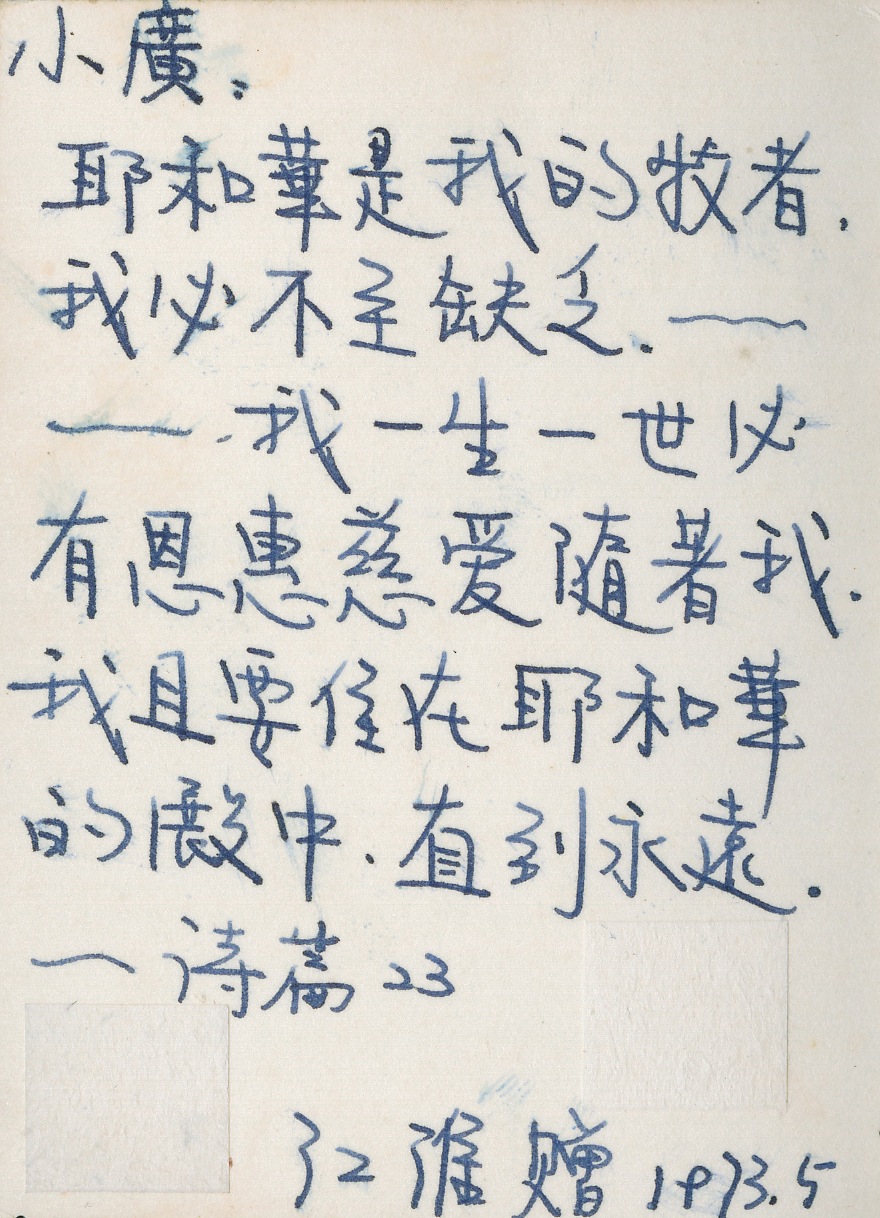 小廣：
耶和華是我的牧者，
我必不至缺乏．——
——．我一生一世必
有恩惠慈爱隨著我．
我且要住在耶和華
的殿中．直到永遠．
—诗篇23
赠 1973.5